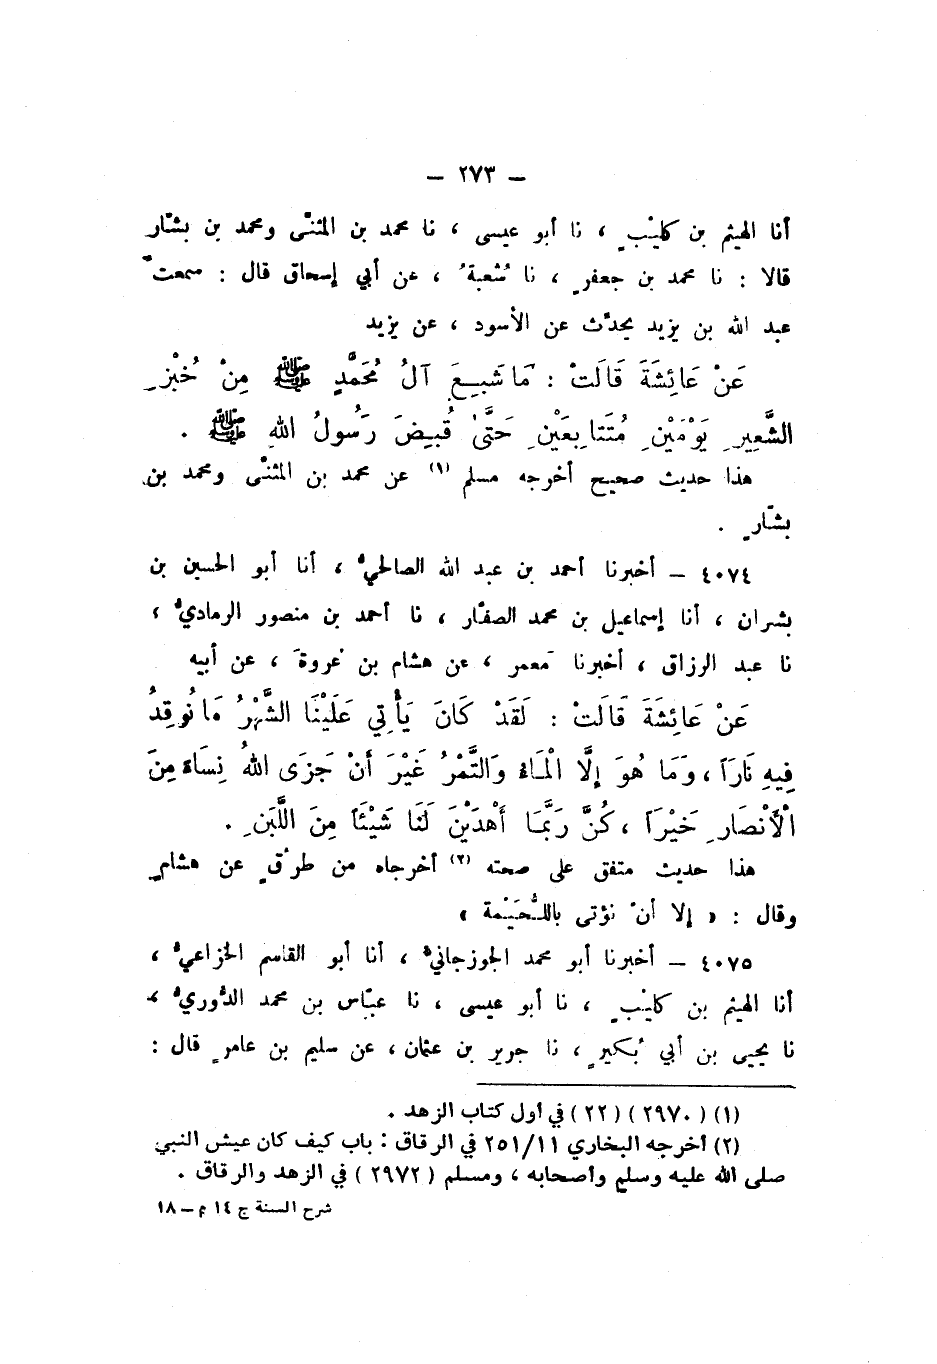 – ٢٧٣ –
أنا الهيثم بن كليْبٍ ، نا أبو عيسى ، نا محمد بن المثنّى ومحمد بن بشّار
قالا : نا محمد بن جعفرٍ ، نا شُعبةُ ، عن أبي إسحاق قال : سمعتُ
عبد الله بن يزيد يحدّث عن الأسود ، عن يزيد
عَنْ عَائِشَةَ قَالَتْ : مَا شَبِعَ آلُ مُحَمَّدٍ ﷺ مِنْ خُبْزِ
الشَّعِيرِ يَوْمَيْنِ مُتَتَابِعَيْنِ حَتَّى قُبِضَ رَسُولُ اللهِ ﷺ .
هذا حديث صحيح أخرجه مسلم (١) عن محمد بن المثنّى ومحمد بن
بشّارٍ .
٤٠٧٤ – أخبرنا أحمد بن عبد الله الصالحيُّ ، أنا أبو الحسين بن
بشران ، أنا إسماعيل بن محمد الصفّار ، نا أحمد بن منصور الرماديُّ ،
نا عبد الرزاق ، أخبرنا مَعمر ، عن هشام بن عُروةَ ، عن أبيه
عَنْ عَائِشَةَ قَالَتْ : لَقَدْ كَانَ يَأْتِي عَلَيْنَا الشَّهْرُ مَا نُوقِدُ
فِيهِ نَارَاً ، وَمَا هُوَ إِلَّا الْمَاءُ وَالتَّمْرُ غَيْرَ أَنْ جَزَى اللهُ نِسَاءً مِنَ
الْأَنْصَارِ خَيْرَاً ، كُنَّ رُبَّمَا أَهْدَيْنَ لَنَا شَيْئَاً مِنَ اللَّبَنِ .
هذا حديث متفق على صحته (٢) أخرجاه من طرُقٍ عن هشامٍ
وقال : « إلا أنْ نؤتى باللُّحَيْمة »
٤٠٧٥ – أخبرنا أبو محمد الجوزجانيُّ ، أنا أبو القاسم الخزاعيُّ ،
أنا الهيثم بن كليْبٍ ، نا أبو عيسى ، نا عبّاس بن محمد الدُّوريُّ ،
نا يحيى بن أبي بُكيرٍ ، نا جرير بن عثمان ، عن سليم بن عامرٍ قال :
(١) ( ٢٩٧٠ ) ( ٢٢ ) في أول كتاب الزهد .
(٢) أخرجه البخاري ٢٥١/١١ في الرقاق : باب كيف كان عيش النبي
صلى الله عليه وسلم وأصحابه ، ومسلم ( ٢٩٧٢ ) في الزهد والرقاق .
شرح السنة ج ١٤ م – ١٨